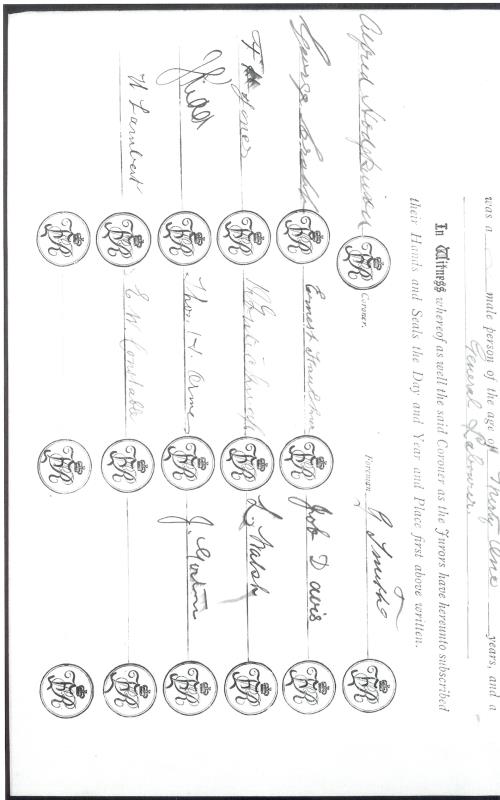 was a male person of the age of Thirty One years, and a
General Labourer.
In Witness whereof as well the said Coroner as the Jurors have hereunto subscribed
their Hands and Seals the Day and Year and Place first above written.
Alfred Hodgkinson Coroner. Foreman. G Smith
George Ernest Job Davis
F Jones L. Walsh
Kidd Thos. H. Ormes J.
H Lambert E. W. Constable